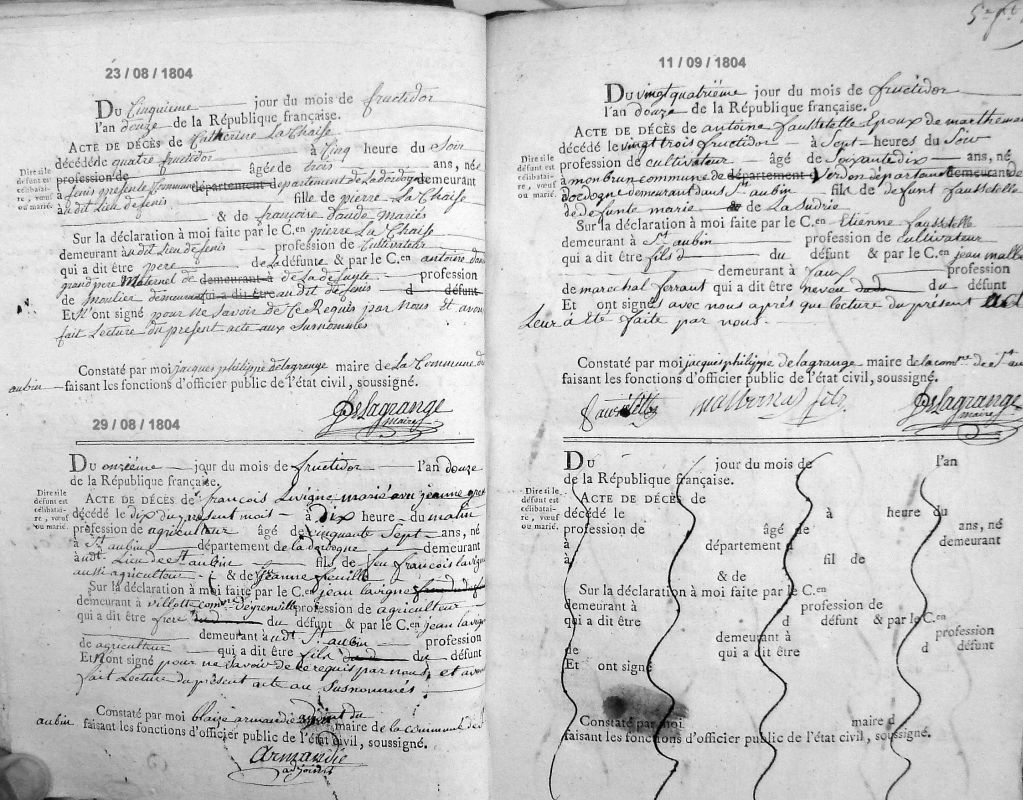 23 / 08 / 1804
Du Cinquieme jour du mois de fructidor
l'an douze de la République française.
Acte de décès de Catherine La Chaise
décédé le quatre fructidor à Cinq heure du Soir
profession de âgée de trois ans, née
Dire si le défunt est célibataire, vœuf ou marié.
à fenis presente Commune département département de La dordogne demeurant
au dit Lieu de fenis fille de pierre La Chaise
& de françoise Daude mariés
Sur la déclaration à moi faite par le C.en pierre La Chaise
demeurant à udit Lieu de fenis profession de Cultivateur
qui a dit être pere de La défunte & par le C.en antoine
grand pere Maternel de demeurant à de La defunte profession
de demeurant qui a dit être au dit de fenis d défunt
Et N'ont signé pour ne Savoir de Ce Requis par Nous Et avons
fait Lecture du present acte aux Susnommés
Constaté par moi jacques philippe delagrange maire de La Commune de
aubin faisant les fonctions d'officier public de l'état civil, soussigné.
Delagrange
maire
29 / 08 / 1804
Du onzième jour du mois de fructidor l'an douze
de la République française.
Acte de décès de françois Lavigne marié avec jeanne
Dire si le défunt est célibataire, vœuf ou marié.
décédé le dix du present mois à dix heure du matin
profession de agriculteur âgé de cinquante Sept ans, né
à St aubin département de la dordogne demeurant
à udt Lieu de St aubin fils de feu françois lavigne
aussi agriculteur & de jeanne feuille
Sur la déclaration à moi faite par le C.en jean lavigne
demeurant à villotte comne Deyrenville profession de agriculteur
qui a dit être frere dud du défunt & par le C.en jean lavigne
demeurant à udt St aubin profession
de agriculteur qui a dit être fils dud du défunt
Et N'ont signé pour ne Savoir de ce requis par nous, et avons
fait Lecture du présent acte au Susnommés
Constaté par moi blaize armandie adjoint du maire de la commune de St
aubin faisant les fonctions d'officier public de l'état civil, soussigné.
Armandie
adjoint
11 / 09 / 1804
Du vingt quatrième jour du mois de fructidor
l'an douze de la République française.
Acte de décès de antoine Faustelette Epoux de marthe
décédé le vingt trois fructidor à Sept heures du Soir
Dire si le défunt est célibataire, vœuf ou marié.
profession de cultivateur âgé de Soixante dix ans, né
à monbrun commune de département Verdon département demeurant de
dordogne demeurant dans St aubin fils de defunt faustelette
de defunte marie & de La Sudrie
Sur la déclaration à moi faite par le C.en Etienne faustelette
demeurant à St aubin profession de cultivateur
qui a dit être fils d du défunt & par le C.en jean
demeurant à profession
de marechal ferrant qui a dit être neveu dud du défunt
Et ont signés avec nous après que lecture du présent acte
Leur à Eté faite par nous
Constaté par moi jacques philippe delagrange maire de la comne de St
faisant les fonctions d'officier public de l'état civil, soussigné.
Delagrange
maire
Du jour du mois de l'an
de la République française.
Dire si le défunt est célibataire, vœuf ou marié.
Acte de décès de
décédé le à heure du
profession de âgé de ans, né
à département d demeurant
à fil de
& de
Sur la déclaration à moi faite par le C.en
demeurant à profession de
qui a dit être d défunt & par le C.en
demeurant à profession
de qui a dit être d défunt
Et ont signé
Constaté par moi maire d
faisant les fonctions d'officier public de l'état civil, soussigné.